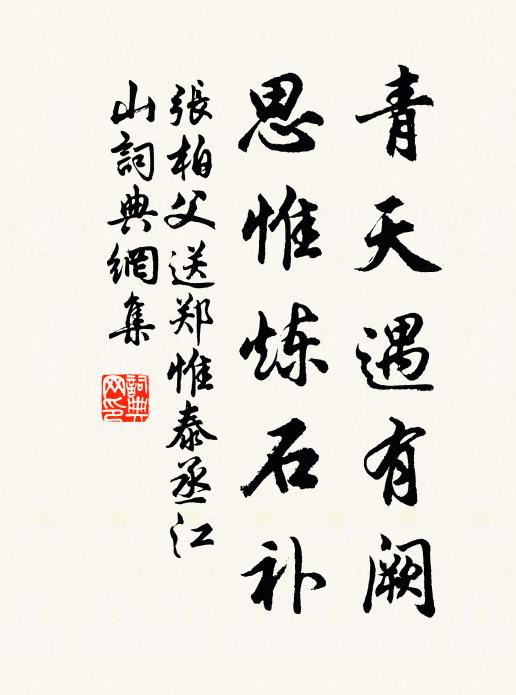 青天遇有阙
思惟炼石补
張柏父送郑惟泰丞江
山詞典網集
詞典
网印